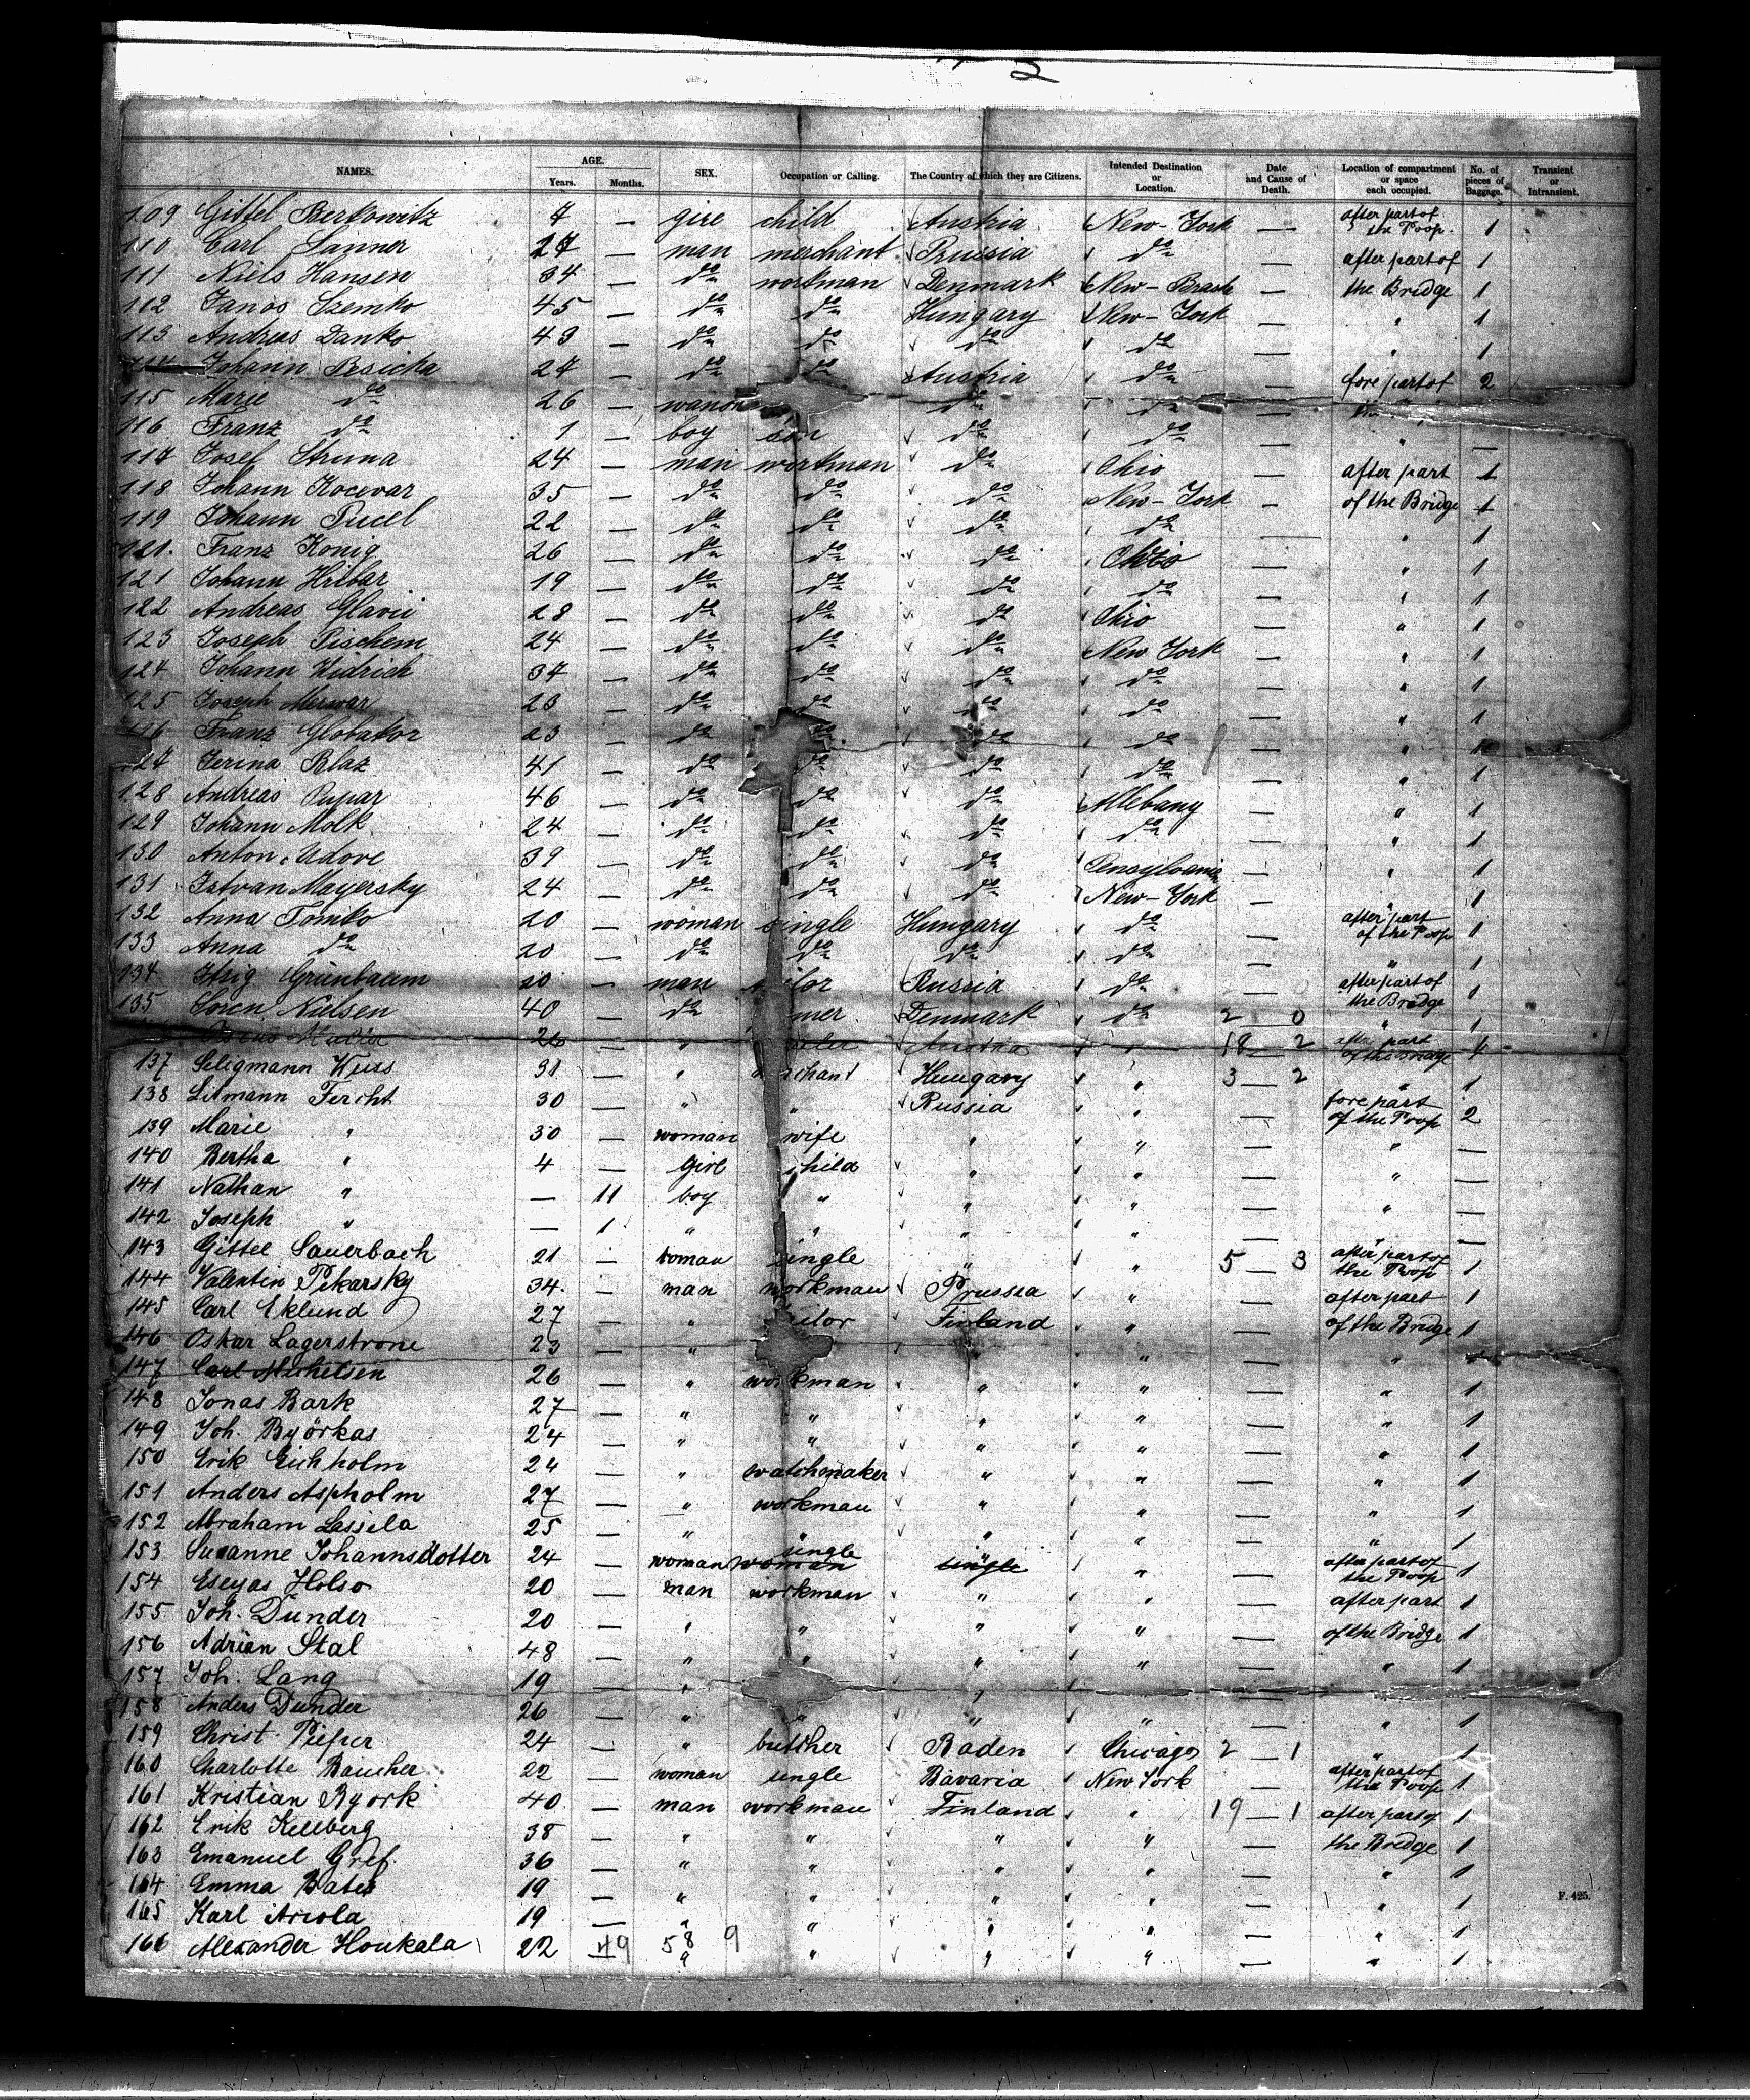 2
NAMES. AGE. Years. Months. SEX. Occupation or Calling. The Country of which they are Citizens. Intended Destination or Location. Date and Cause of Death. Location of compartment or space each occupied. No. of pieces of Baggage. Transient or Intransient.
109 Gittel Berkowitz 7 — girl child Austria New-York — after part of the Poop. 1
110 Carl Lanner 27 — man merchant Russia do — after part of 1
111 Niels Hansen 34 — do workman Denmark New- — the Bridge 1
112 Janos Szemko 45 — do do Hungary New-York — " 1
113 Andreas Danko 43 — do do do do — " 1
114 Johann Pesicka 27 — do do Austria do — fore part of 2
115 Marie do 26 — do do —
116 Franz do 1 — boy son do do — " —
117 Josef Struna 24 — man workman do Ohio — after part 1
118 Johann Kocevar 35 — do do do New-York — of the Bridge 1
119 Johann Pucel 22 — do do do do — " 1
121. Franz Konig 26 — do do do Ohio — " 1
121 Johann Hribar 19 — do do do do — " 1
122 Andreas Glavii 28 — do do do Ohio — " 1
123 Joseph Pischem 24 — do do do New York — " 1
124 Johann Widrich 37 — do do do do — " 1
125 Joseph Merwar 23 — do do do do — " 1
126 Franz Globakor 23 — do do do do — "
127 Jerina Blaz 41 — do do do do — " 1
128 Andreas Pupar 46 — do do do Allebany — " 1
129 Johann Molk 24 — do do do do — " 1
130 Anton Udove 39 — do do do Pensylvania — " 1
131 Istvan Mayersky 24 — do do do New-York — " 1
132 Anna Tomko 20 — woman single Hungary do — after part of the Poop 1
133 Anna do 20 — do do do do — " 1
134 Grünbaum — man Russia do after part of the Bridge 1
135 Soren Nielsen 40 — do Denmark do 2 0 " 1
26 — " Austria " 18 — 2 after part of the Bridge
137 Seligmann Weiss 31 — " Hungary " 3 — 2 " 1
138 Litmann Fercht 30 — " " Russia " — fore part of the Poop 2
139 Marie " 30 — woman wife " " — " —
140 Bertha " 4 — girl child " " — " —
141 Nathan " — 11 boy " " " — " —
142 Joseph " — 1 " " " " — " —
143 Gittel Sauerbach 21 — woman single " " 5 — 3 after part of the Poop 1
144 Valentin Pekarsky 34. — man workman Prussia " — after part 1
145 Carl Eklund 27 — " Finland " — of the Bridge 1
146 Oskar Lagerstrone 23 — " " — "
147 Carl Michelsen 26 — " workman " " — " 1
148 Jonas Bark 27 — " " " " — " 1
149 Joh. Byörkas 24 — " " " " — " 1
150 Erik Eichholm 24 — " watchmaker " " — " 1
151 Anders Aspholm 27 — " workman " " — " 1
152 Abraham Lassila 25 — " " " " — " 1
153 Susanne Johannsdotter 24 — woman woman single single " — after part of the Poop 1
154 Eseyas Holso 20 — man workman " " — after part 1
155 Joh. Dunder 20 — " " " " — of the Bridge 1
156 Adrian Stal 48 — " " " " — " 1
157 Joh. Lang 19 — " "
158 Anders Dunder 26 — " " " " — " 1
159 Christ. Piefrer 24 — " butcher Baden Chicago 2 — 1 " 1
160 Charlotte Bauscher 22 — woman single Bavaria New York — after part of the Poop 1
161 Kristian Byork 40 — man workman Finland " 19 — 1 after part of 1
162 Erik Kellberg 38 — " " " " — the Bridge 1
163 Emanuel Gref. 36 — " " " " — " 1
164 Emma Bates 19 — " " " " — " 1
165 Karl Ariola 19 — " " " " — " 1
166 Alexander Houkala 22 — 49 58 9 " " " " — " 1
F. 425.